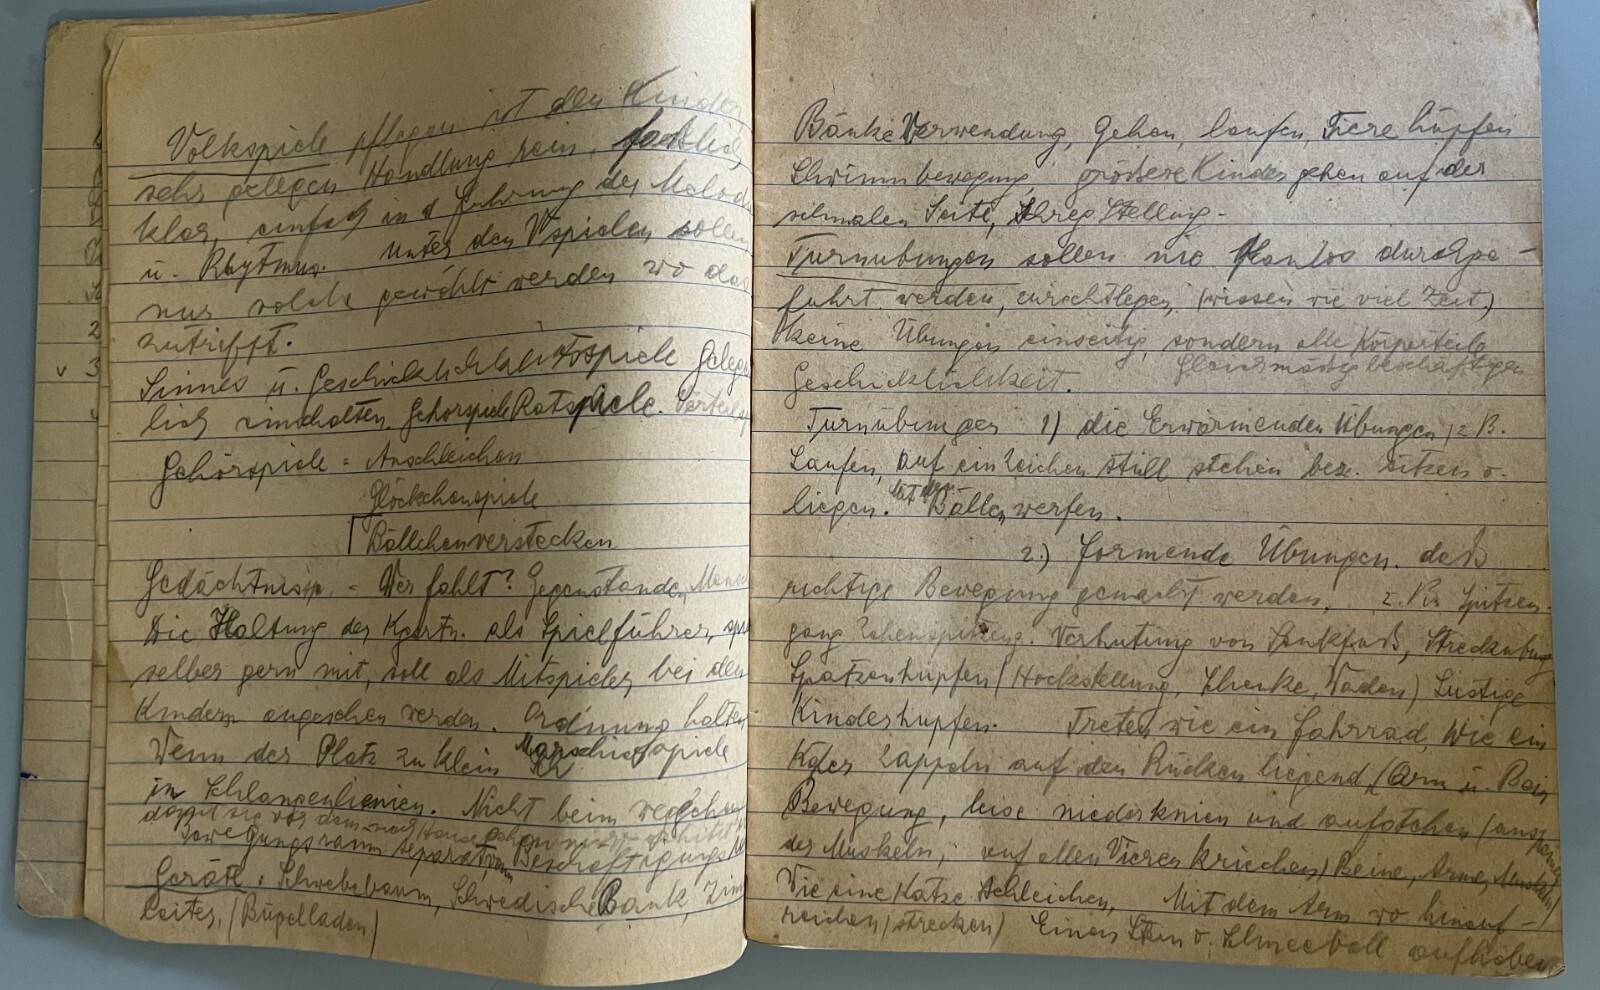 Volkspiele pflegen ist den Kinder
sehr gelegen Handlung sein,
klar, einfach in d Führung der Melod
u. Rhytmus. Unter den Vspielen sollen
nur solche gewählt werden wo das
zutrifft.
Sinnes u. Geschicklichkeitsspiele Gelege
lich einschalten. Gehörspiele Ratspiele.
Gehörspiele = Anschleichen
Glöckchenspiele
Bällchenverstecken
Gedächtnissp. = Wer fehlt? Gegenstände,
Die Haltung der Kgärtn. als Spielführer,
selber gern mit, soll als Mitspieler bei den
Kindern angesehen werden. Ordnung halten
Wenn der Platz zu klein Marschierspiele
in Schlangenlienien. Nicht beim
damit sie vor dem nach Hause gehen nicht erhitzt
Bewegungsraum separat, vom Beschäftigungs
Geräte: Schwebebaum, Schwedische Bank,
Leiter, (Bügelladen)
2
v 3
Bänke Verwendung, Gehen, laufen, Tiere hüpfen
Schwimmbewegung, größere Kinder gehen auf der
schmalen Seite, Schreg Stellung -
Turnübungen sollen nie planlos durchge-
führt werden, zurechtlegen, (wissen wie viel Zeit.)
keine Übungen einseitig, sondern alle Körperteile
gleichmäsig beschäftigen
Geschicklichkeit.
Turnübungen 1) die Erwärmenden Übungen, z B.
Laufen, auf ein Zeichen still stehen bez. sitzen o.
liegen. Bällen werfen.
2.) formende Übungen. daß
richtige Bewegung gemacht werden, z. B. Spitzen-
gang. Verhütung von Senkfuß,
Spatzenhüpfen (Hockstellung, Schenke, Waden) Lustige
Kinderhüpfen. Treten wie ein Fahrrad, Wie ein
Käfer Zappeln auf den Rücken liegend, (Arm u. Bein
Bewegung, leise niederknien und aufstehen
der Muskeln, auf allen Vieren kriechen) Beine, Arme,
Wie eine Katze schleichen, Mit dem Arm wo hinauf-
reichen (strecken) Einen Stein o. Schneeball aufheben